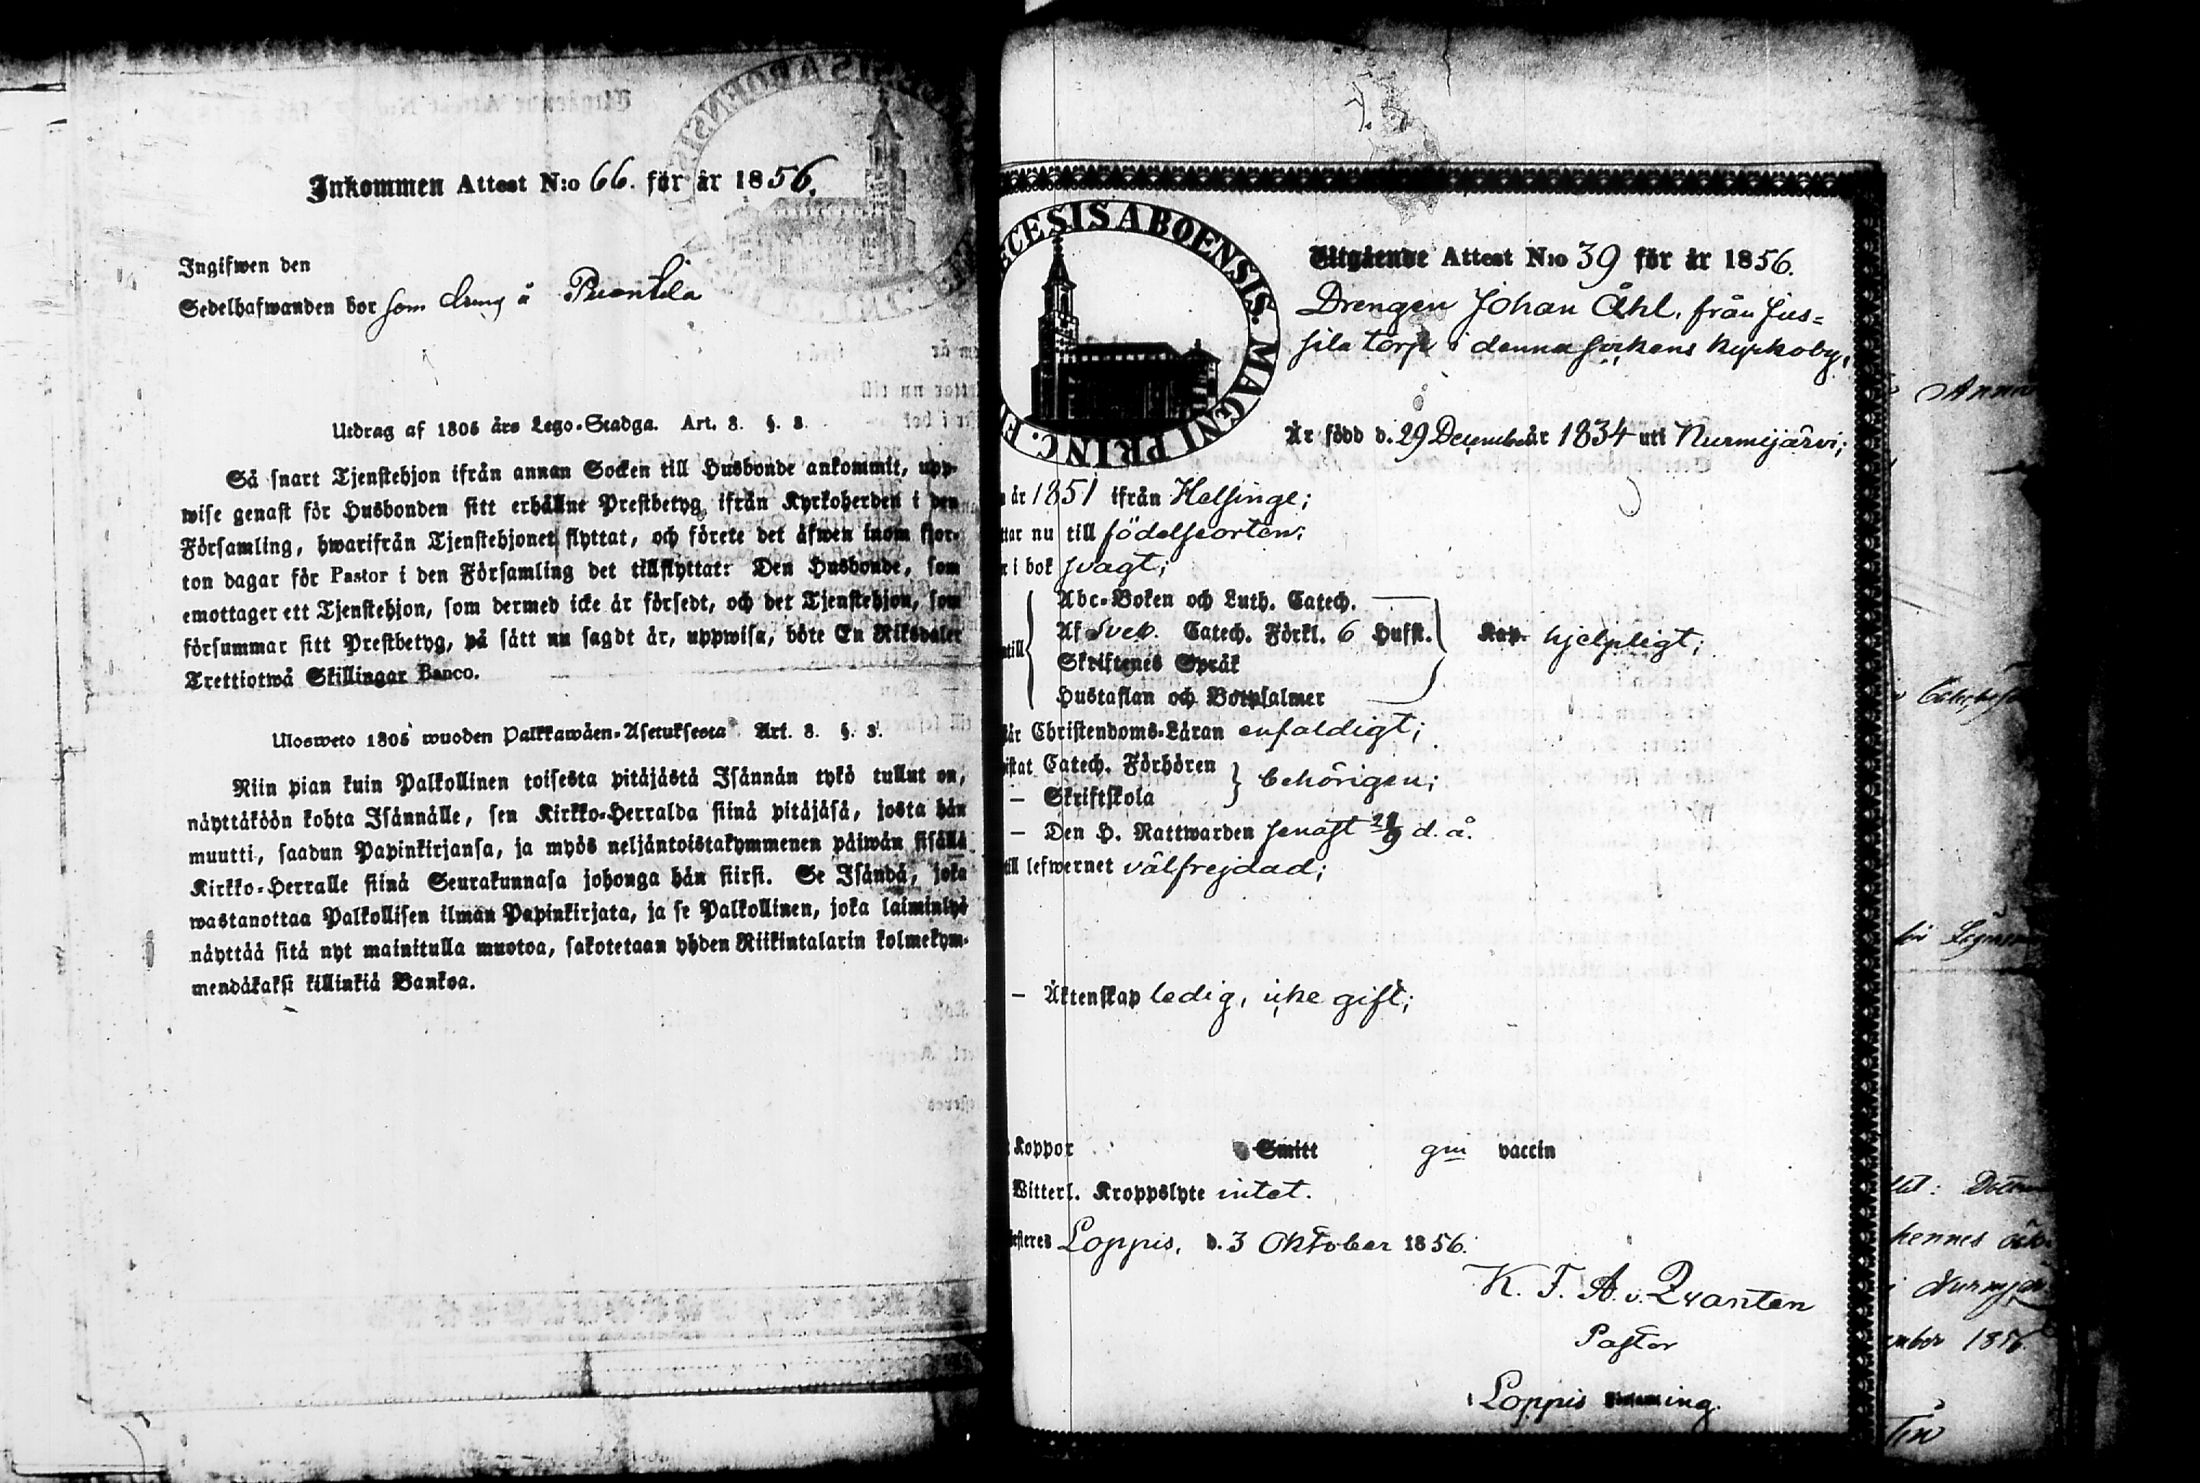 Inkommen Attest N:o 66. för år 1856.
Ingifwen den
Sedelhafwanden bor som dreng å Puontila
Utdrag af 1805 års Lego-Stadga. Art. 8. §. 8.
Så snart Tjenstehjon ifrån annan Socken till Husbonde ankommit, upp-
wise genast för Husbonden sitt erhållne Prestbetyg ifrån Kyrkoherden i den
Församling, hwarifrån Tjenstehjonet flyttat, och förete det äfwen inom fjor-
ton dagar för Pastor i den Församling det tillflyttat: Den Husbonde, som
emottager ett Tjenstehjon, som dermed icke är försedt, och det Tjenstehjon, som
försummar sitt Prestbetyg, på sätt nu sagdt är, uppwisa, böte En Riksdaler
Trettiotwå Skillingar Banco.
Ulosweto 1805 wuoden Palkkawäen-Asetuksesta Art. 8. §. 8.
Niin pian kuin Palkollinen toisesta pitäjästä Isännän tykö tullut on,
näyttäköön kohta Isännälle, sen Kirkko-Herralda siinä pitäjäsä, josta hän
muutti, saadun Papinkirjansa, ja myös neljäntoistakymmenen päiwän sisällä
Kirkko-Herralle siinä Seurakunnasa johonga hän siirsi. Se Isändä, joka
wastanottaa Palkollisen ilman Papinkirjata, ja se Palkollinen, joka laiminlyö
näyttää sitä nyt mainitulla muotoa, sakotetaan yhden Riikintalarin kolmekym-
mendäkaksi killinkiä Bankoa.
CESIS ABOENSIS. MAGNI PRINC. F
Utgående Attest N:o 39 för år 1856.
Drengen Johan Åhl, från Jus=
sila torp i denna sockens kyrkoby,
Är född d. 29 December år 1834 uti Nurmijärvi;
år 1851 ifrån Helsinge;
ttar nu till födelseorten;
r i bok svagt;
Abc-Boken och Luth. Catech.
Af Sveb. Catech. Förkl. 6 Hufst.
Skriftenes Språk
Hustaflan och Botpsalmer
ntill
Kap. hjelpligt;
Christendoms-Läran enfaldigt;
istat Catech. Förhören
— Skriftskola
behörigen;
— Den H. Nattwarden senast 21/9 d. å.
till lefwernet välfrejdad;
— Äktenskap ledig, icke gift;
Koppor Smitt gm vaccin
Witterl. Kroppslyte intet.
esteres Loppis, d. 3 Oktober 1856.
K. F. A. v. Qvanten
Pastor
Loppis
Anna
hennes
Nurmijär
mber 1856